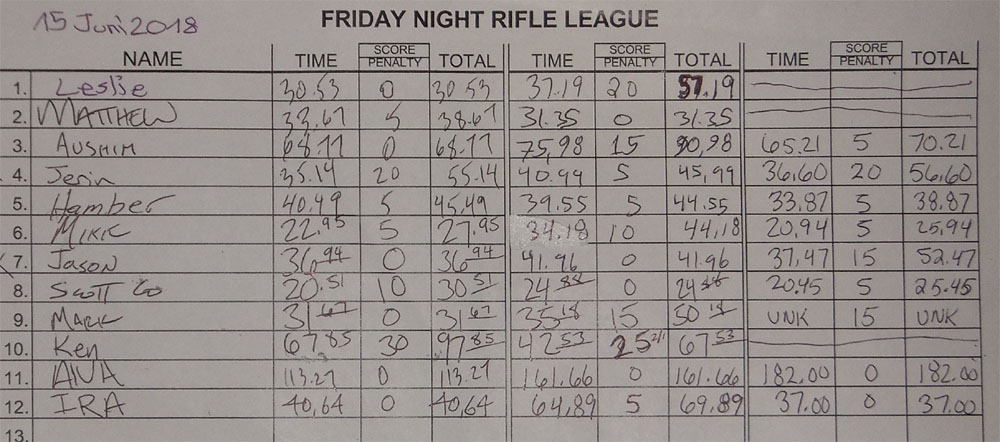 15 Juni 2018
FRIDAY NIGHT RIFLE LEAGUE
NAME TIME SCORE PENALTY TOTAL TIME SCORE PENALTY TOTAL TIME SCORE PENALTY TOTAL
1. Leslie 30.53 0 30.53 37.19 20 57.19
2. MATTHEW 33.67 5 38.67 31.35 0 31.35
3. AUSHIM 68.77 0 68.77 75,98 15 90,98 65.21 5 70.21
4. Jerin 35.14 20 55.14 40.99 5 45,99 36,60 20 56,60
5. Hamber 40.49 5 45,49 39.55 5 44.55 33.87 5 38.87
6. MIKIE 22.95 5 27.95 34.18 10 44,18 20,94 5 25,94
7. Jason 36.94 0 36.94 41.96 0 41.96 37,47 15 52.47
8. SCOTT Co 20.51 10 30 51 24 88 0 24 88 20.45 5 25.45
9. MARK 31 67 0 31 67 35 18 15 50 18 UNK 15 UNK
10. Ken 67.85 30 97 85 42 53 25 67 53
11. AVA 113.27 0 113.27 161.66 0 161.66 182.00 0 182.00
12. IRA 40,64 0 40,64 64,89 5 69.89 37.00 0 37.00
13.